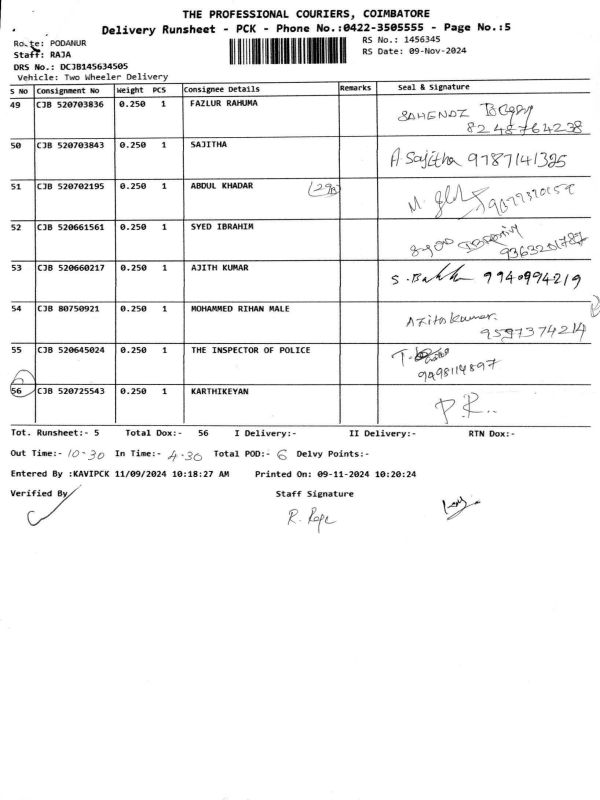 THE PROFESSIONAL COURIERS, COIMBATORE
Delivery Runsheet - PCK - Phone No.:0422-3505555 - Page No.:5
Route: PODANUR
RS No.: 1456345
Staff: RAJA
RS Date: 09-Nov-2024
DRS No.: DCJB145634505
Vehicle: Two Wheeler Delivery
S No Consignment No Weight PCS Consignee Details Remarks Seal & Signature
49 CJB 520703836 0.250 1 FAZLUR RAHUMA
8248764238
50 CJB 520703843 0.250 1 SAJITHA A. Sajitha 9787141325
51 CJB 520702195 0.250 1 ABDUL KHADAR
52 CJB 520661561 0.250 1 SYED IBRAHIM
9363201787
53 CJB 520660217 0.250 1 AJITH KUMAR 9940994219
54 CJB 80750921 0.250 1 MOHAMMED RIHAN MALE
9597374214
55 CJB 520645024 0.250 1 THE INSPECTOR OF POLICE
9498114897
56 CJB 520725543 0.250 1 KARTHIKEYAN P.R..
Tot. Runsheet:- 5 Total Dox:- 56 I Delivery:- II Delivery:- RTN Dox:-
Out Time:- 10-30 In Time:- 4-30 Total POD:- 6 Delvy Points:-
Entered By :KAVIPCK 11/09/2024 10:18:27 AM Printed On: 09-11-2024 10:20:24
Verified By Staff Signature